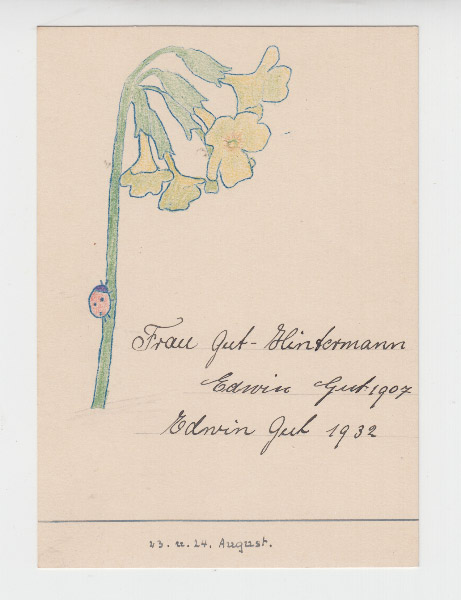 Frau Gut-Hintermann
Edwin Gut 1907
Edwin Gut 1932
23. u. 24. August.